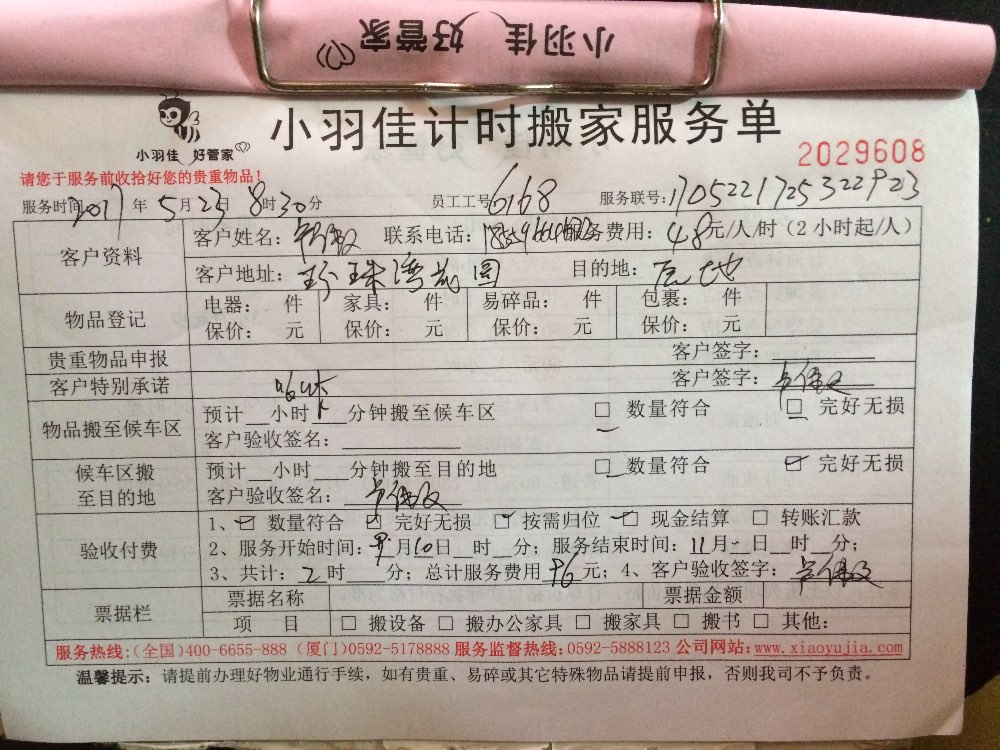 小羽佳 好管家
小羽佳 好管家
小羽佳计时搬家服务单
2029608
请您于服务前收拾好您的贵重物品！
服务时间 2017 年 5 月 23 日 8 时 30 分 员工工号 6168 服务联号：
客户资料
客户姓名： 联系电话： 服务费用：48元/人/时（2 小时起/人）
客户地址：珍珠湾花园 目的地：
物品登记
电器： 件 家具： 件 易碎品： 件 包裹： 件
保价： 元 保价： 元 保价： 元 保价： 元
贵重物品申报 客户签字：
客户特别承诺 客户签字：
物品搬至候车区
预计__小时___分钟搬至候车区 □ 数量符合 □ 完好无损
客户验收签名：
候车区搬至目的地
预计__小时___分钟搬至目的地 □ 数量符合 ☑ 完好无损
客户验收签名：
验收付费
1、☑ 数量符合 ☑ 完好无损 ☑ 按需归位 ☑ 现金结算 □ 转账汇款
2、服务开始时间： 月10日__时__分；服务结束时间：11月 日__时__分；
3、共计：2时___分；总计服务费用 96 元；4、客户验收签字：
票据栏
票据名称 票据金额
项 目 □ 搬设备 □ 搬办公家具 □ 搬家具 □ 搬书 □ 其他：
服务热线:(全国)400-6655-888（厦门)0592-5178888 服务监督热线:0592-5888123 公司网站:www.xiaoyujia.com
温馨提示：请提前办理好物业通行手续，如有贵重、易碎或其它特殊物品请提前申报，否则我司不予负责。